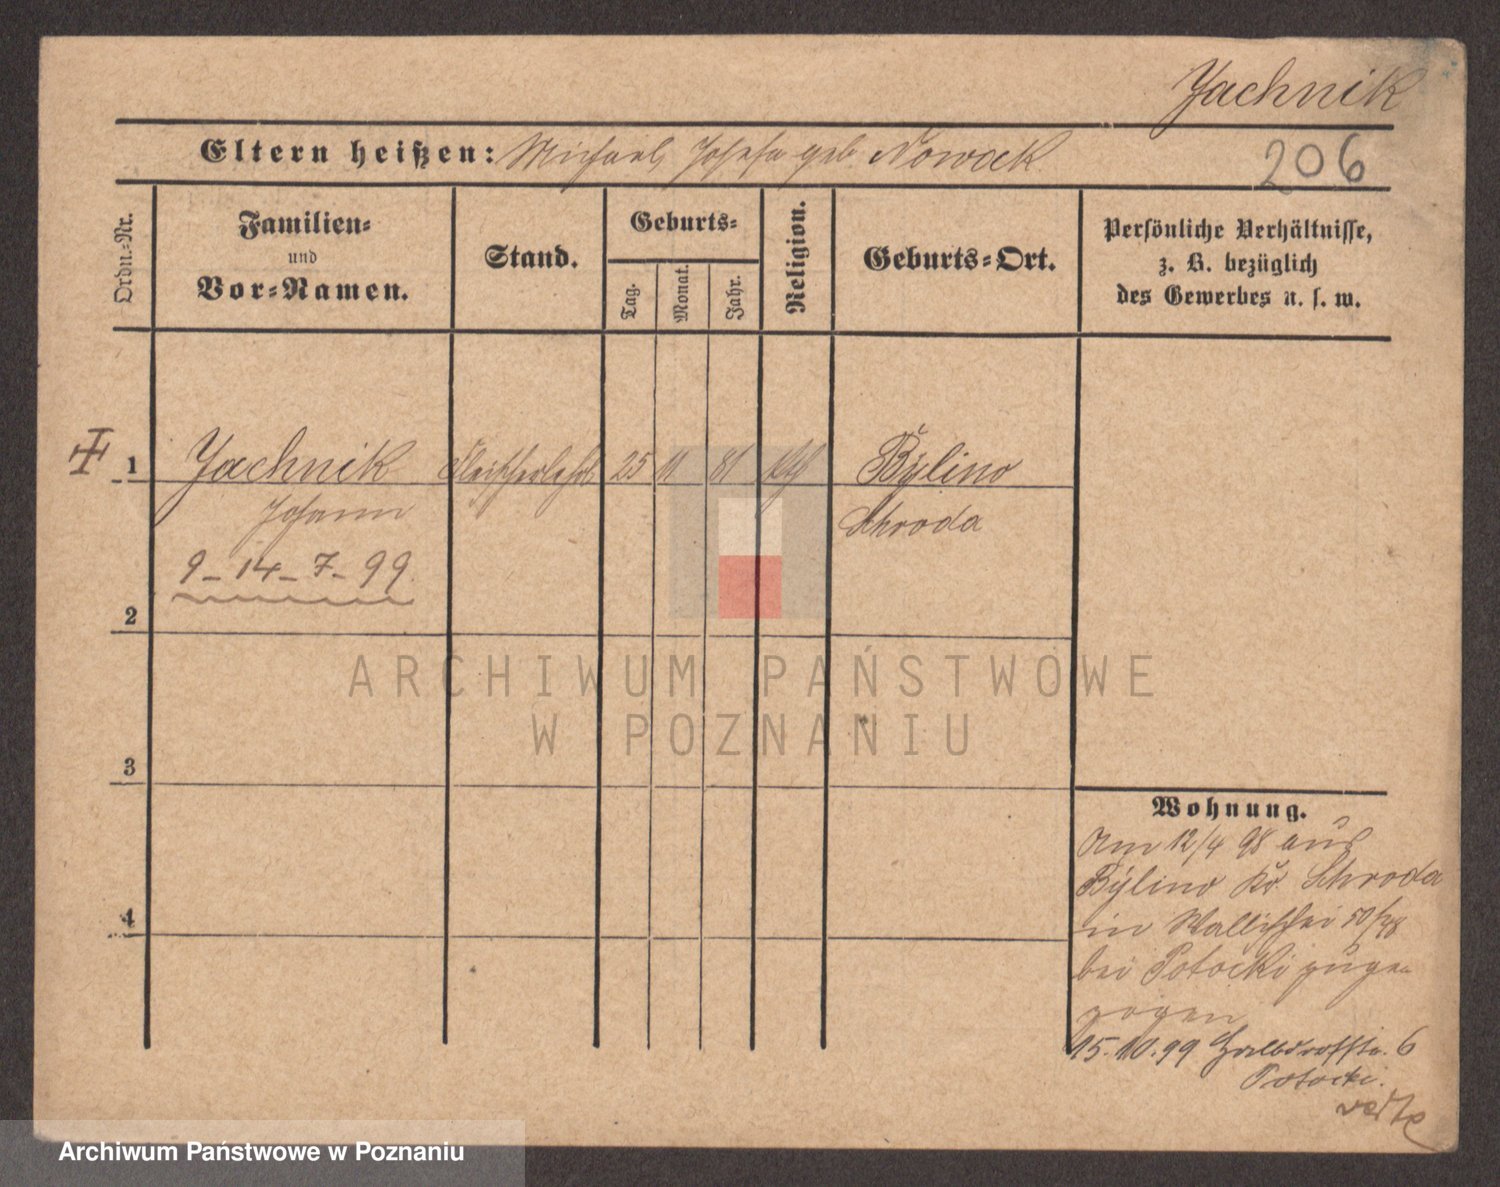 Jachnik
Eltern heißen: Michael, Josefa geb. Nowack
206
Ordn.-Nr.
Familien-
und
Vor-Namen.
Stand.
Geburts-
Tag.
Monat.
Jahr.
Religion.
Geburts-Ort.
Persönliche Verhältnisse,
z. B. bezüglich
des Gewerbes u. s. w.
1 Jachnik Fleischerlehrl 25 11 81 kth Bylino
Johann Schroda
9-14-7-99
2
3
4
Wohnung.
Am 12/4 98 aus
Bylino Kr. Schroda
in Wallischei 50/98
bei Potocki zuge-
zogen
15.10.99 Halbdorfstr. 6
Potocki.
ARCHIWUM PAŃSTWOWE
W POZNANIU
Archiwum Państwowe w Poznaniu